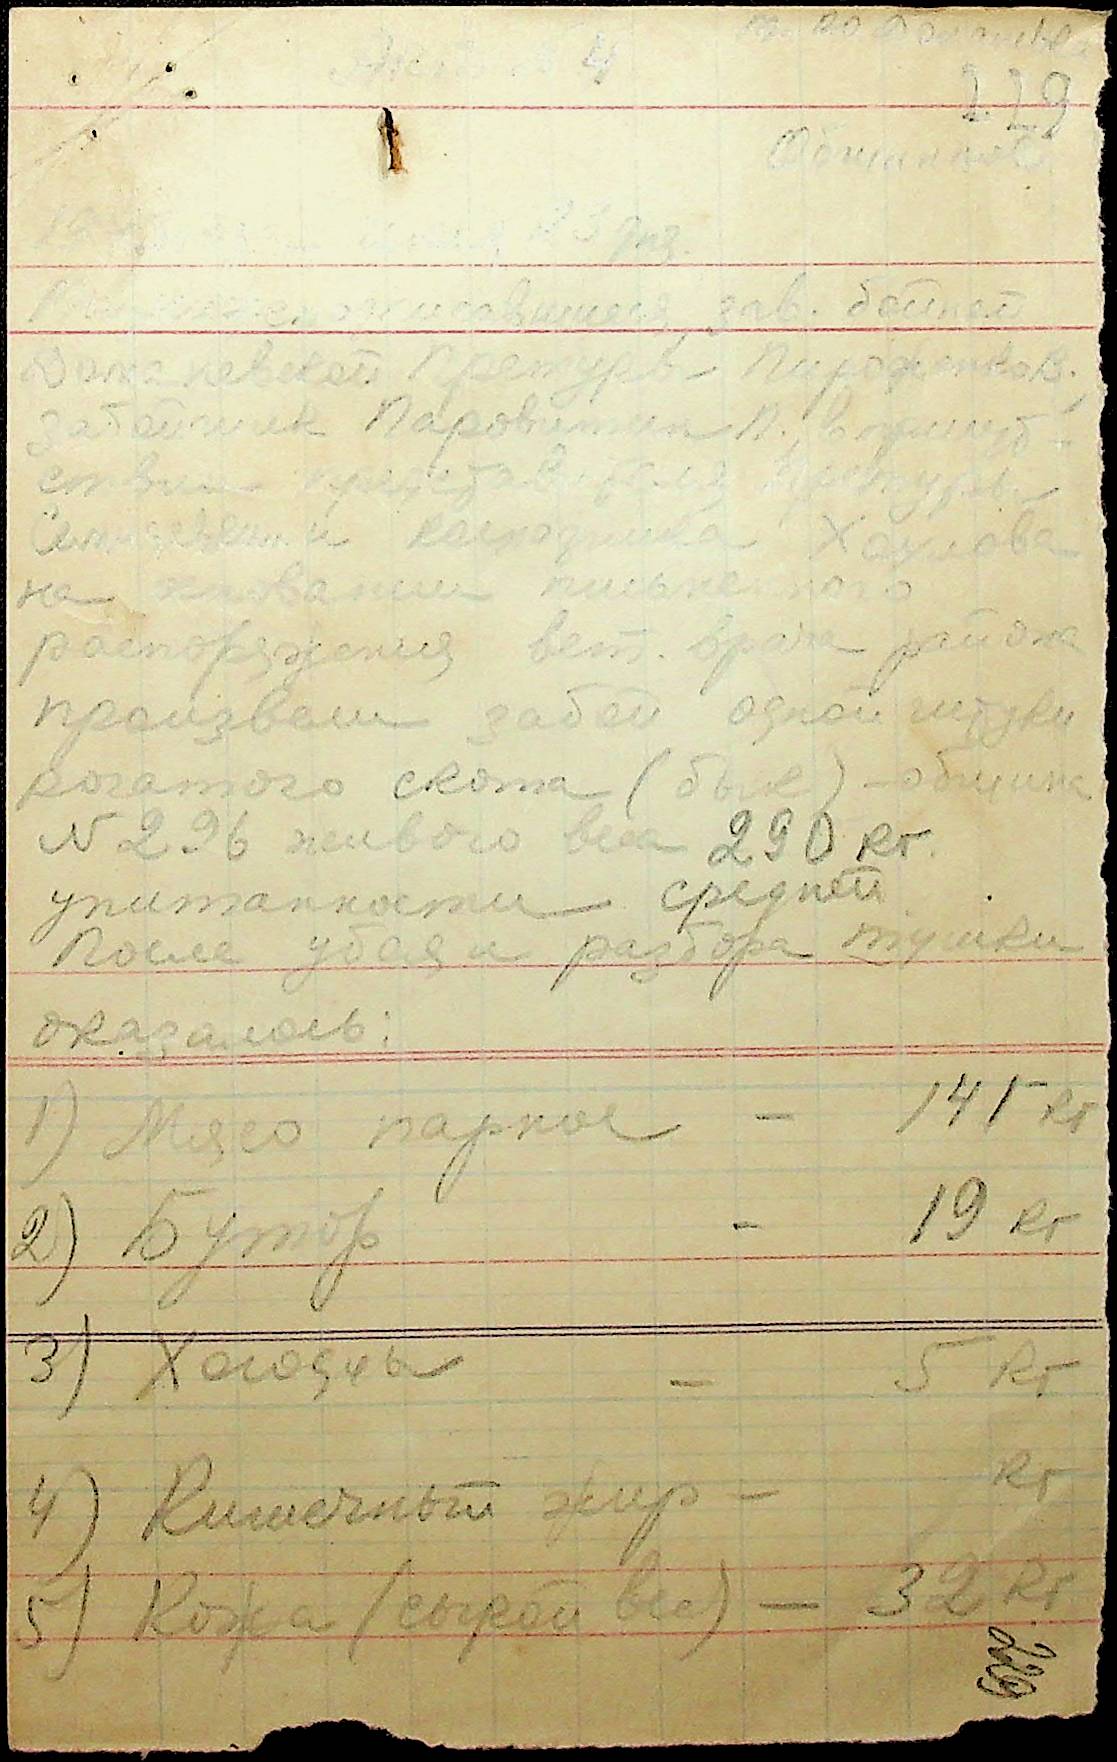 Акт № 4
229
Общинной
43 г.
зав. бойней
Доманевской Претуры Пироженков.
забойщик Паровитин П., в присут-
ствии представителя Претуры
и кладовщика Хохлова
на основании письменного
распоряжения вет. врача района
произвели забой одной штуки
рогатого скота (бык) - община
№ 296 живого веса 290 кг.
упитанности средней
После убоя и разбора тушки
оказалось:
1) Мясо парное - 141 кг
2) Бутор - 19 кг
3) Хогодцы - 5 кг
4) Кишечный жир - кг
5) Кожа (сырой вес) - 32 кг
229